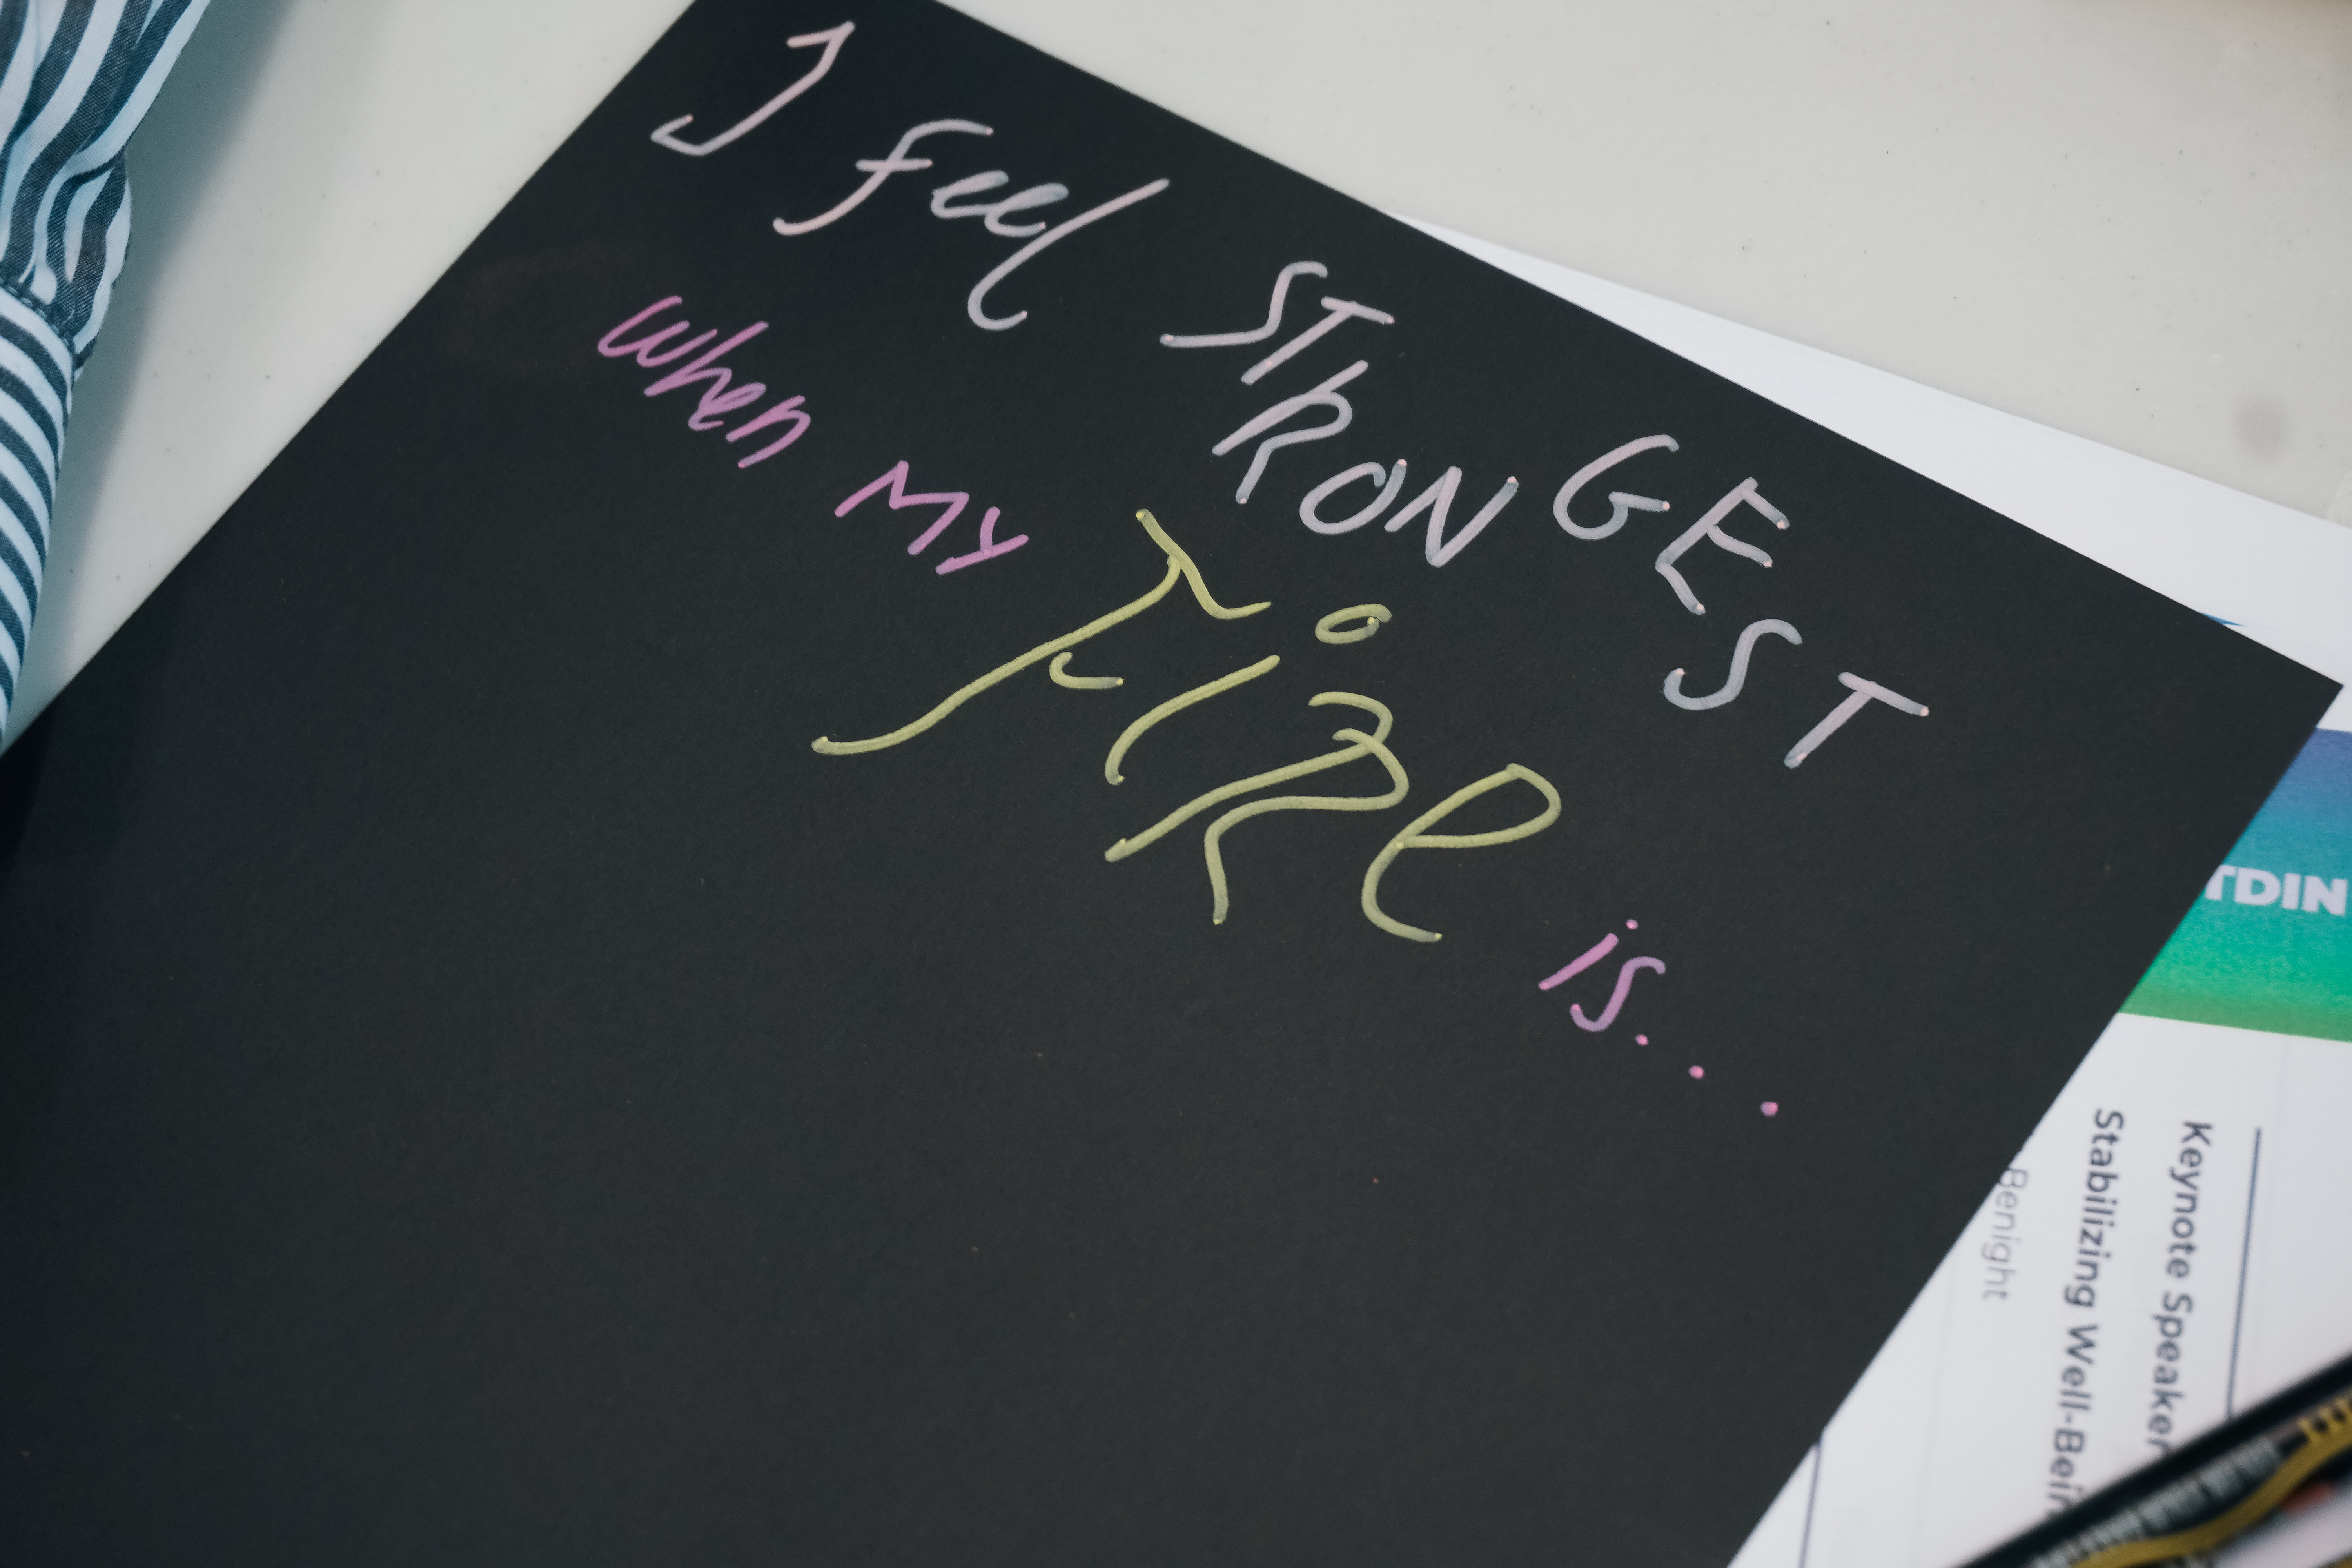 I feel STRONGEST
when My FiRe is...
TDIN
Keynote Speaker
Stabilizing Well-Bein
Benight